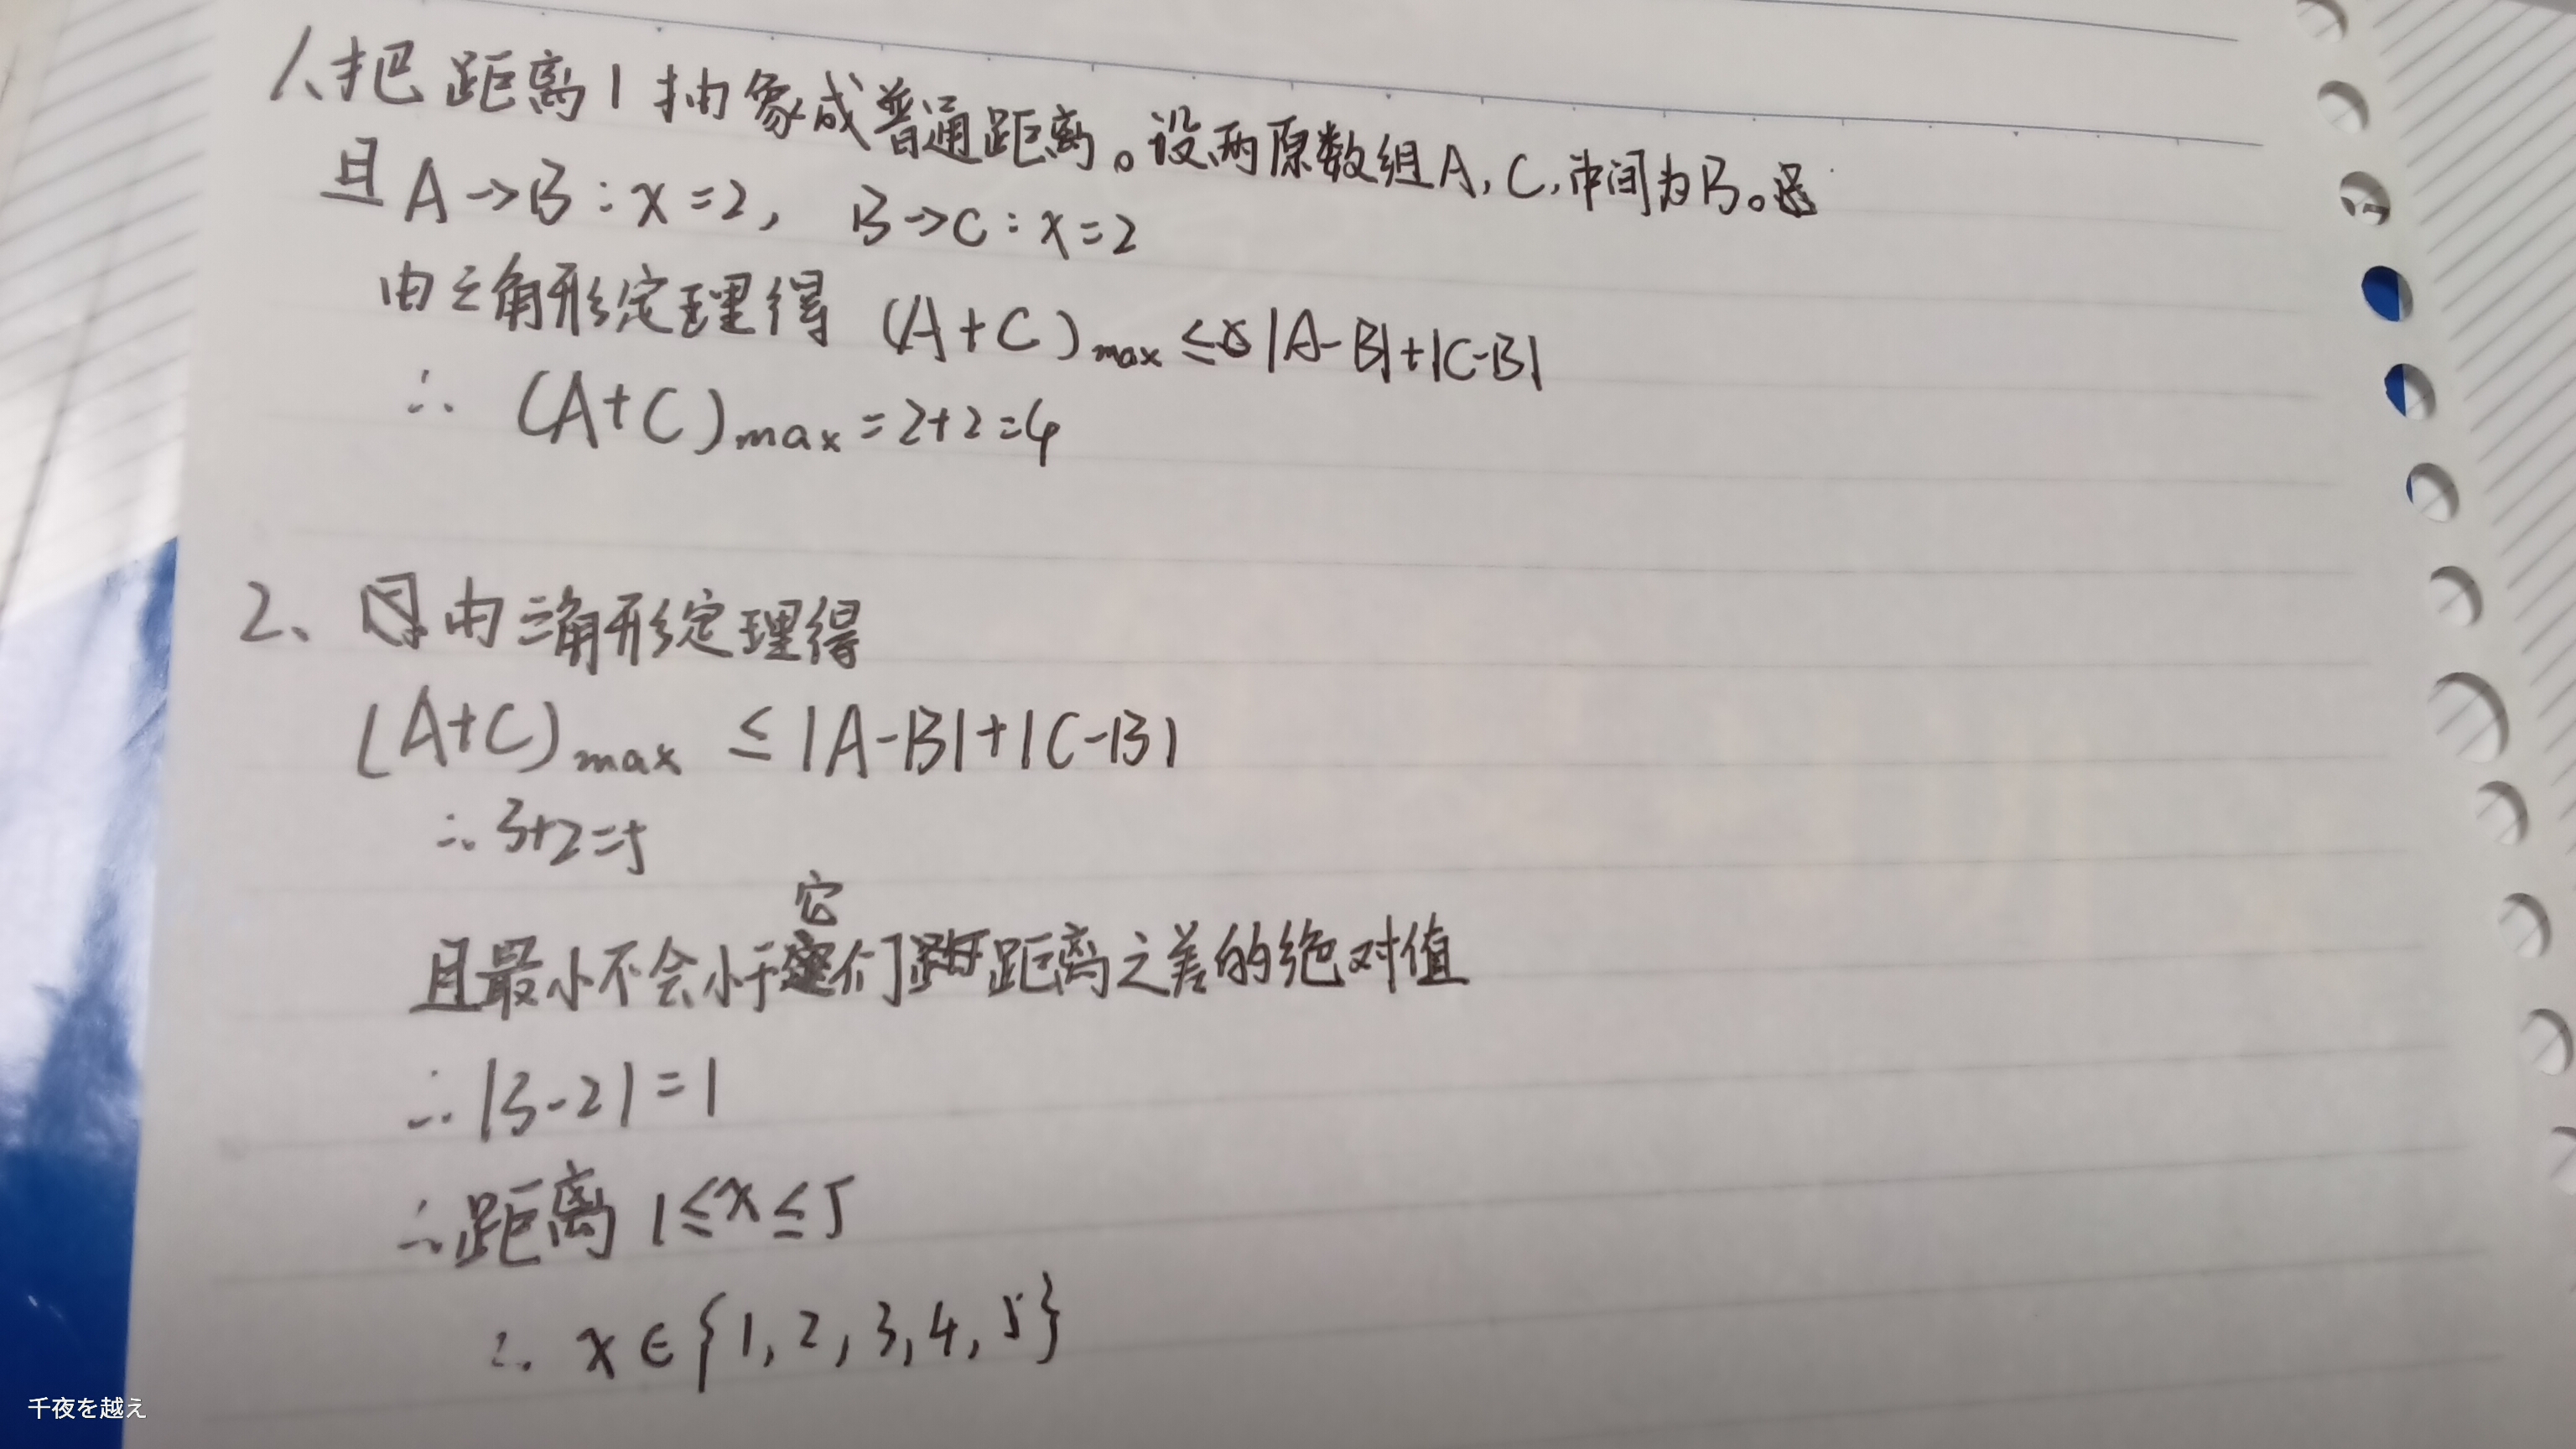 1、把距离1抽象成普通距离。设两原数组A,C,中间为B。
且A→B:x=2, B→C:x=2
由三角形定理得 (A+C)max≤|A-B|+|C-B|
∴ (A+C)max=2+2=4
2、由三角形定理得
(A+C)max ≤|A-B|+|C-B|
∴3+2=5
且最小不会小于它们距离之差的绝对值
∴|3-2|=1
∴距离 1≤x≤5
∴ x∈{1,2,3,4,5}
千夜を越え